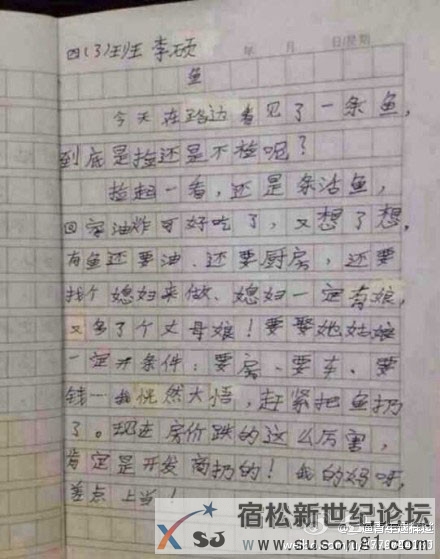 四(3)班 李硕
年 月 日/星期
鱼
今天在路边看见了一条鱼,
到底是捡还是不捡呢?
捡起一看,还是条活鱼,
回家油炸可好吃了,又想了想,
有鱼还要油、还要厨房,还要
找个媳妇来做、媳妇一定有娘,
又多了个丈母娘!要娶她姑娘
一定开条件:要房、要车、要
钱一我恍然大悟,赶紧把鱼扔
了。现在房价跌的这么厉害,
肯定是开发商扔的!我的妈呀,
差点上当!
宿松新世纪论坛
XSJ
www.susong87.com